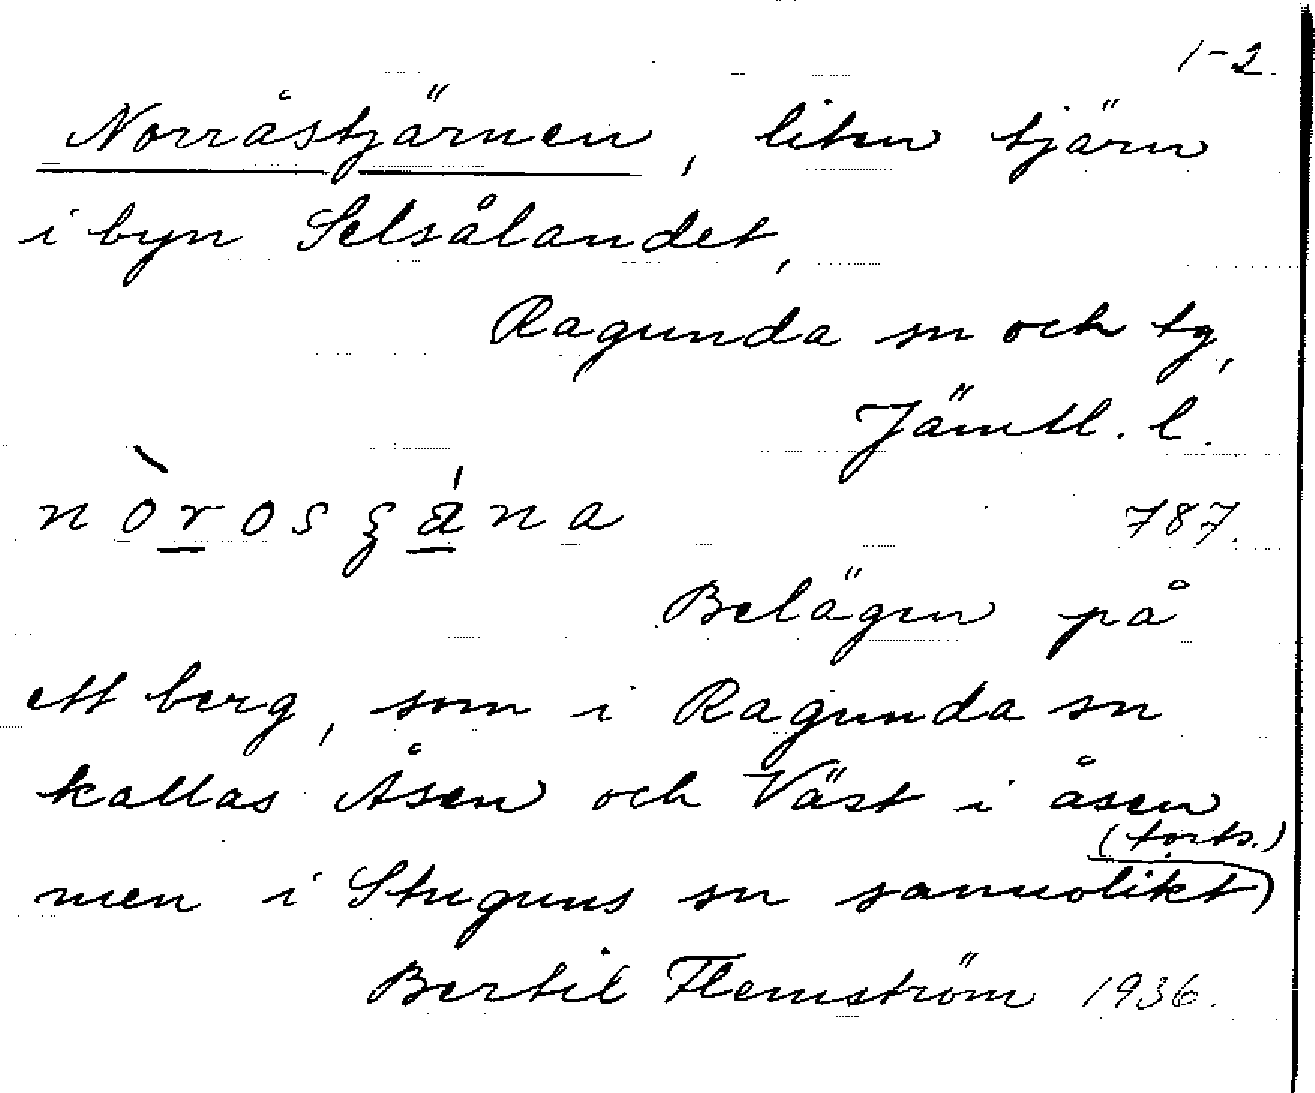 1-2.
Norråstjärnen, liten tjärn
i byn Selsålandet,
Ragunda sn och tg,
Jämtl. l.
nòrosʒána
787.
Belägen på
ett berg, som i Ragunda sn
kallas Åsen och Väst i åsen
(forts.)
men i Stuguns sn sannolikt
Bertil Flemström 1936.